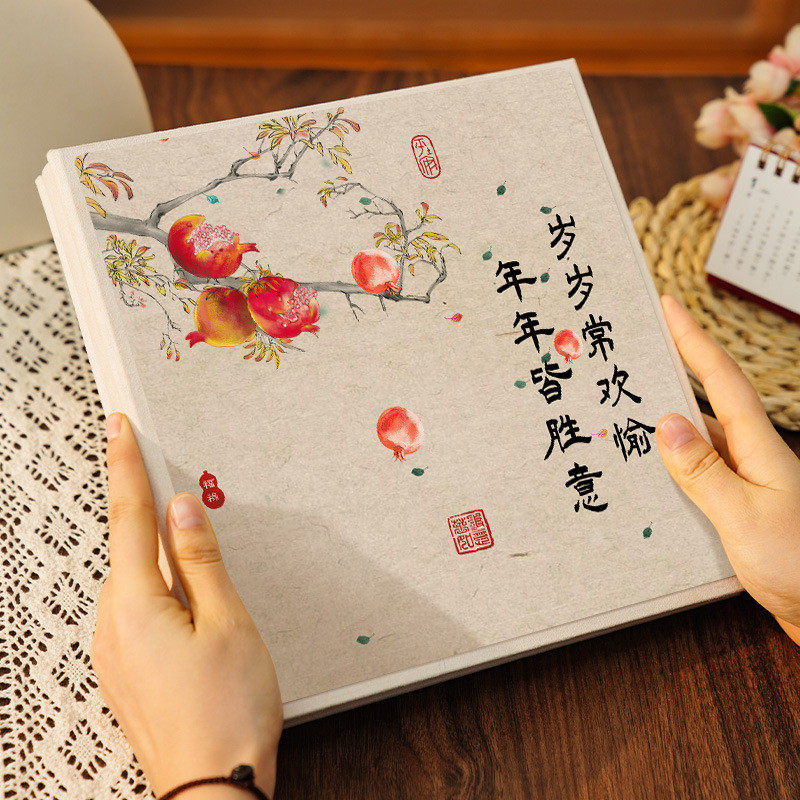 岁岁常欢愉
年年皆胜意
福禄